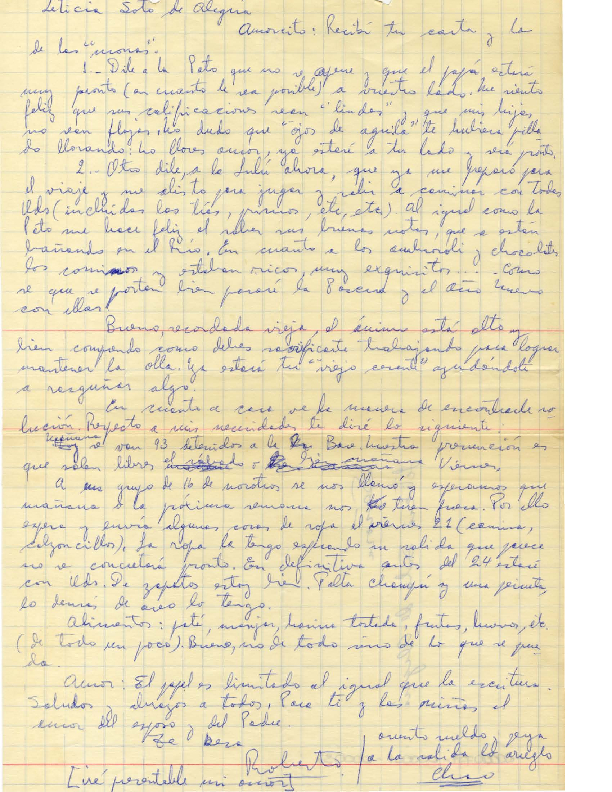 Leticia Soto de Alegria
Amorcito: Recibí tu carta y la
de las "monas".
1.- Dile a la Pato que no se apene y que el papá estará
muy pronto (en cuanto le sea posible) a vuestro lado. Me siento
feliz que sus calificaciones sean "lindas" y que mis hijas
no sean flojas. No dudo que "ojos de aguila" te hubiera pilla
do llorando: No llores amor, ya estaré a tu lado y será pronto.
2.- Otro dile, a la Lulú ahora, que ya me preparo para
el viaje y me alisto para jugar y salir a caminar con todas
Uds (incluídas las tías, primos, etc, etc). Al igual como la
Pato me hace feliz el saber sus buenas notas, que se están
bañando en el Río. En cuanto a los y chocolates
los comimos y estaban ricos, muy exquisitos.... Como
se que se portan bien pasaré la Pascua y el Año Nuevo
con ellas.
Bueno, recordada vieja, el ánimo está alto y
bien comprendo como debes sacrificarte trabajando para lograr
mantener la olla. Ya estará tu "viejo" ayudándote
a rasguñar algo.
En cuanto a casa, ve la manera de encontrarle so
lución. Respecto a mis necesidades te diré lo siguiente:
se van 93 detenidos a la Base. Nuestra presunción es
que salen libres el sábado o mañana Viernes.
A un grupo de 16 de nosotros se nos llamó y esperamos que
mañana o la próxima semana nos tiren fuera. Por ello
espera y envía algunas cosas de ropa el viernes 21 (camisa,
calzoncillos). La ropa la tengo esperando mi salida que parece
se concretará pronto. En definitiva antes del 24 estaré
con Uds. De zapatos estoy bien. Falta champú y una peineta,
lo demás de aseo lo tengo.
Alimentos: paté, manjar, harina tostada, frutas, huevos, etc.
(de todo un poco). Bueno, no de todo sino de lo que se pue-
da.
Amor: El papel es limitado al igual que la escritura.
Saludos y abrazos a todos. Para ti y las niñas el
amor del esposo y del Padre.
Te besa
Roberto.
[iré presentable mi amor]
a la salida lo arreglo
Chao